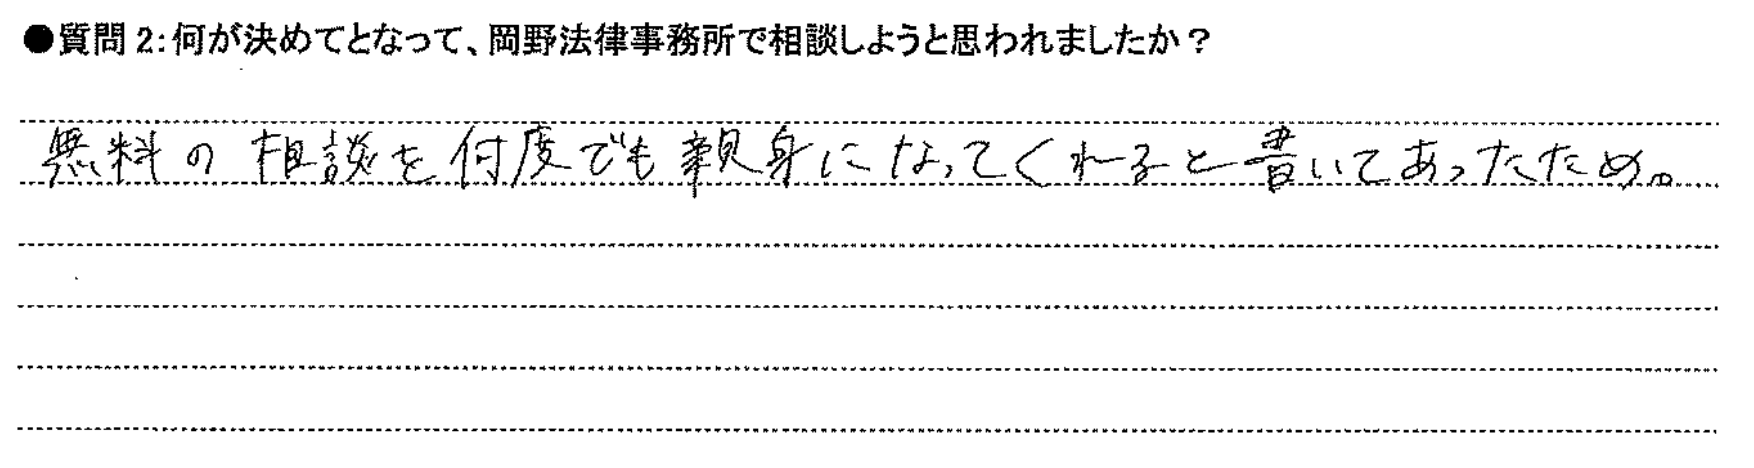 ●質問2:何が決めてとなって、岡野法律事務所で相談しようと思われましたか?
無料の相談を何度でも親身になってくれると書いてあったため。